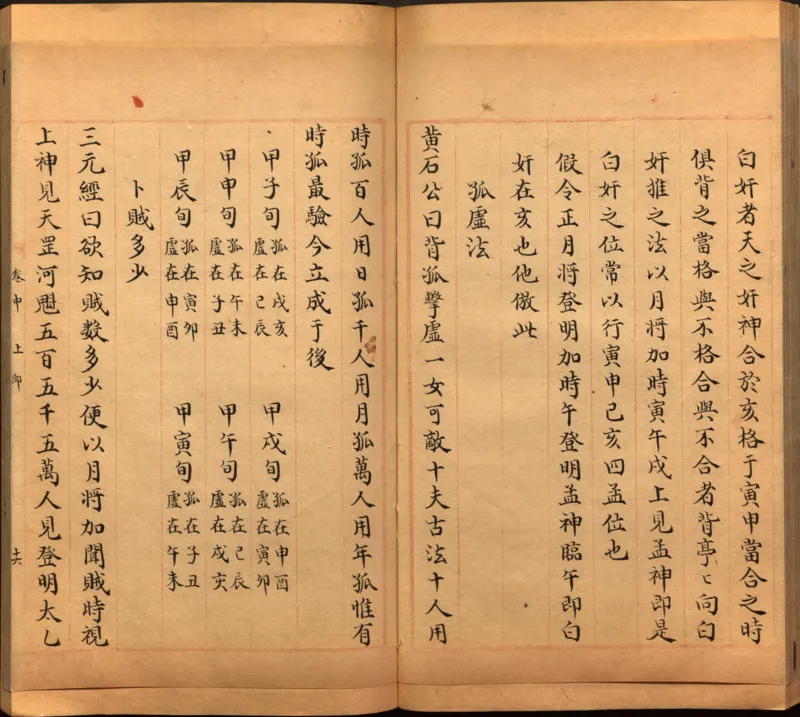 白奸者天之奸神合於亥格于寅申當合之時
俱背之當格與不格合與不合者背亭〻向白
奸推之法以月將加時寅午戌上見孟神即是
白奸之位常以行寅申巳亥四孟位也
假令正月將登明加時午登明孟神臨午即白
奸在亥也他倣此
孤虛法
黃石公曰背孤擊虛一女可敵十夫古法十人用
時孤百人用日孤千人用月孤萬人用年孤惟有
時孤最驗今立成于後
甲子旬 孤在戌亥 虛在巳辰 甲戌旬 孤在申酉 虛在寅卯
甲申旬 孤在午未 虛在子丑 甲午旬 孤在巳辰 虛在戌亥
甲辰旬 孤在寅卯 虛在申酉 甲寅旬 孤在子丑 虛在午未
卜賊多少
三元經曰欲知賊数多少便以月將加聞賊時視
上神見天罡河魁五百五千五萬人見登明太乙
卷中 上 卸 十六